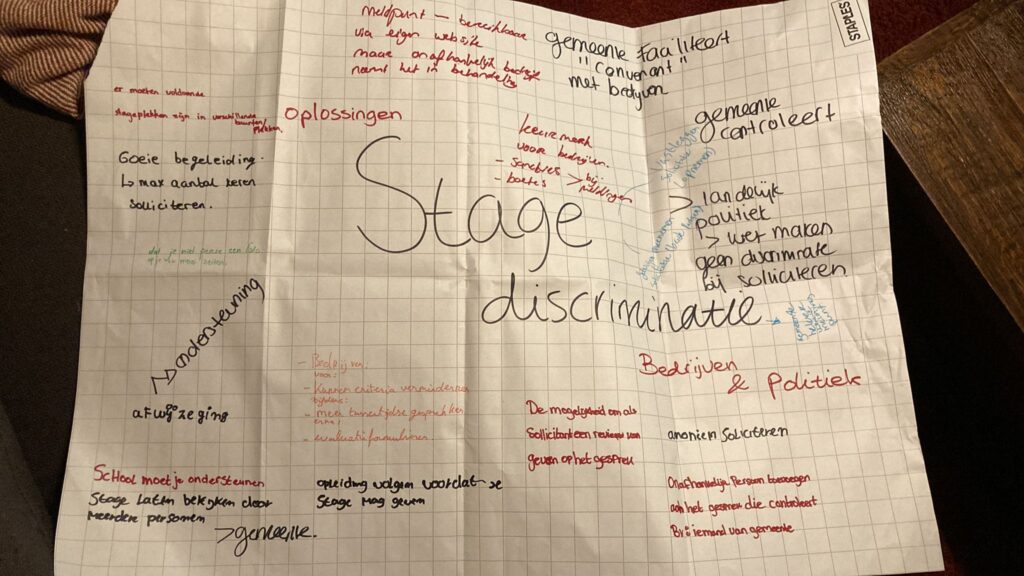 STAPLES
meldpunt — bereikbaar
via eigen website
maar onafhankelijk bedrijf
neemt het in behandeling
gemeente faciliteert
"Convenant"
met bedrijven
gemeente
controleert
er moeten voldoende
stageplekken zijn in verschillende
buurten/
plekken
oplossingen
Goeie begeleiding.
↳ max aantal keren
solliciteren.
keurmerk
voor bedrijven.
- Sancties > bij
- boetes meldingen
Stage
discriminatie
> landelijk
politiek
> wet maken
geen discriminate
bij solliciteren
dat je niet een foto
ondersteuning
afwijzeging
- Bedrijven
voor:
- Kunnen criteria verminderen
tijdens:
- meer tussentijdse gesprekken
erna:
- evaluatieformulieren
Bedrijven
& Politiek
De mogelijkheid om als
Sollicitant een review van
geven op het gesprek
anoniem Soliciteren
School moet je ondersteunen
Stage laten bekijken door
Meerdere personen
> gemeente.
opleiding volgen voordat je
Stage mag geven
Onafhankelijk Persoon toevoegen
aan het gesprek die controleert
Bv iemand van gemeente